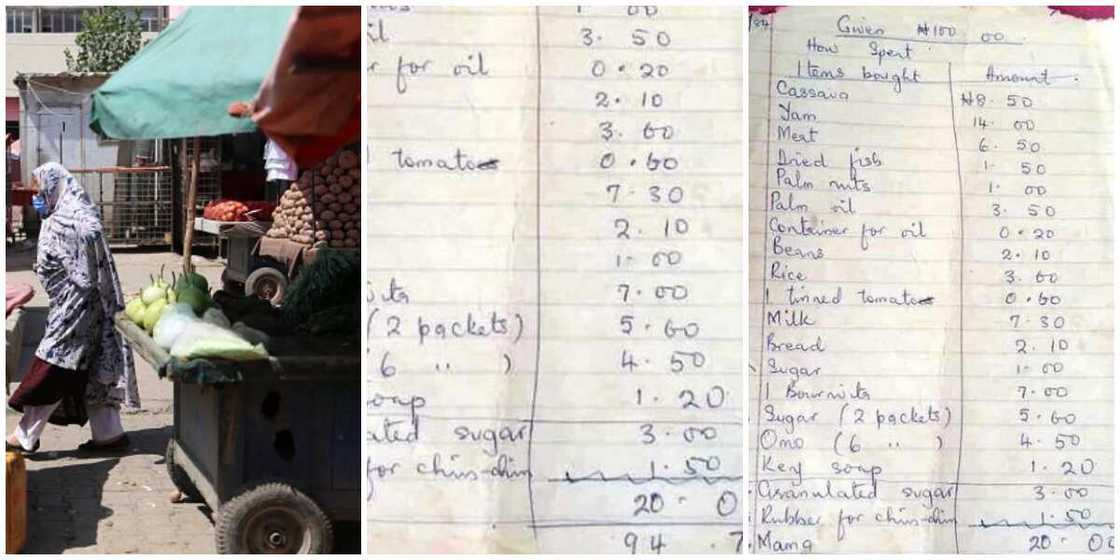 1. 00
il 3. 50
r for oil 0.20
2.10
3.60
1 tomatoe 0.60
7.30
2.10
1.00
vita 7.00
(2 packets) 5.60
(6 " ) 4.50
oap 1.20
ated sugar 3.00
for chin-chin 1.50
20.0
94.7
/84
Given ₦100 00
How Spent
Items bought Amount
Cassava ₦8.50
Yam 14.00
Meat 6.50
Dried fish 1.50
Palm nuts 1.00
Palm oil 3.50
Container for oil 0.20
Beans 2.10
Rice 3.60
1 tinned tomatoe 0.60
Milk 7.30
Bread 2.10
Sugar 1.00
1 Bournvita 7.00
Sugar (2 packets) 5.60
Omo (6 " ) 4.50
Key soap 1.20
Granulated sugar 3.00
Rubber for chin-chin 1.50
Mama 20.00